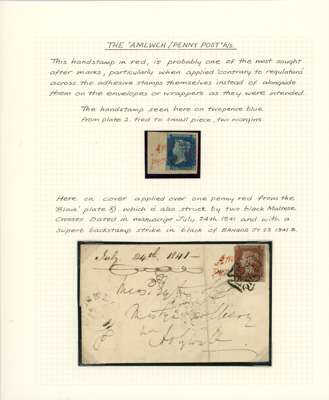 THE "AMLWCH/PENNY POST" H/S
This handstamp in red, is probably one of the most sought
after marks, particularly when applied 'contrary to regulations'
across the adhesive stamps themselves instead of alongside
them on the envelopes or wrappers as they were intended.
The handstamp seen here on twopence blue
from plate 2. tied to small piece, two margins.
Here on cover applied over one penny red from the
'Black' plate which is also struck by two black Maltese
Crosses Dated in manuscript July 24th 1841 and with a
superb backstamp strike in black of BANGOR JY 23 1841 B.
July 24th 1841
Miss